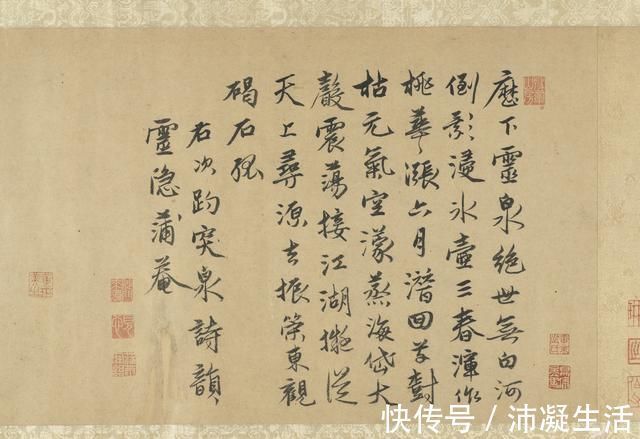 歷下靈泉絕世無白河
倒影浸冰壺三春渾作
桃華漲六月潛回草樹
枯元氣空濛蒸海岱大
聲震蕩接江湖擬從
天上尋源去振策東觀
碣石孤
右次趵突泉詩韻
靈隱蒲菴
快传号 / 沛凝生活